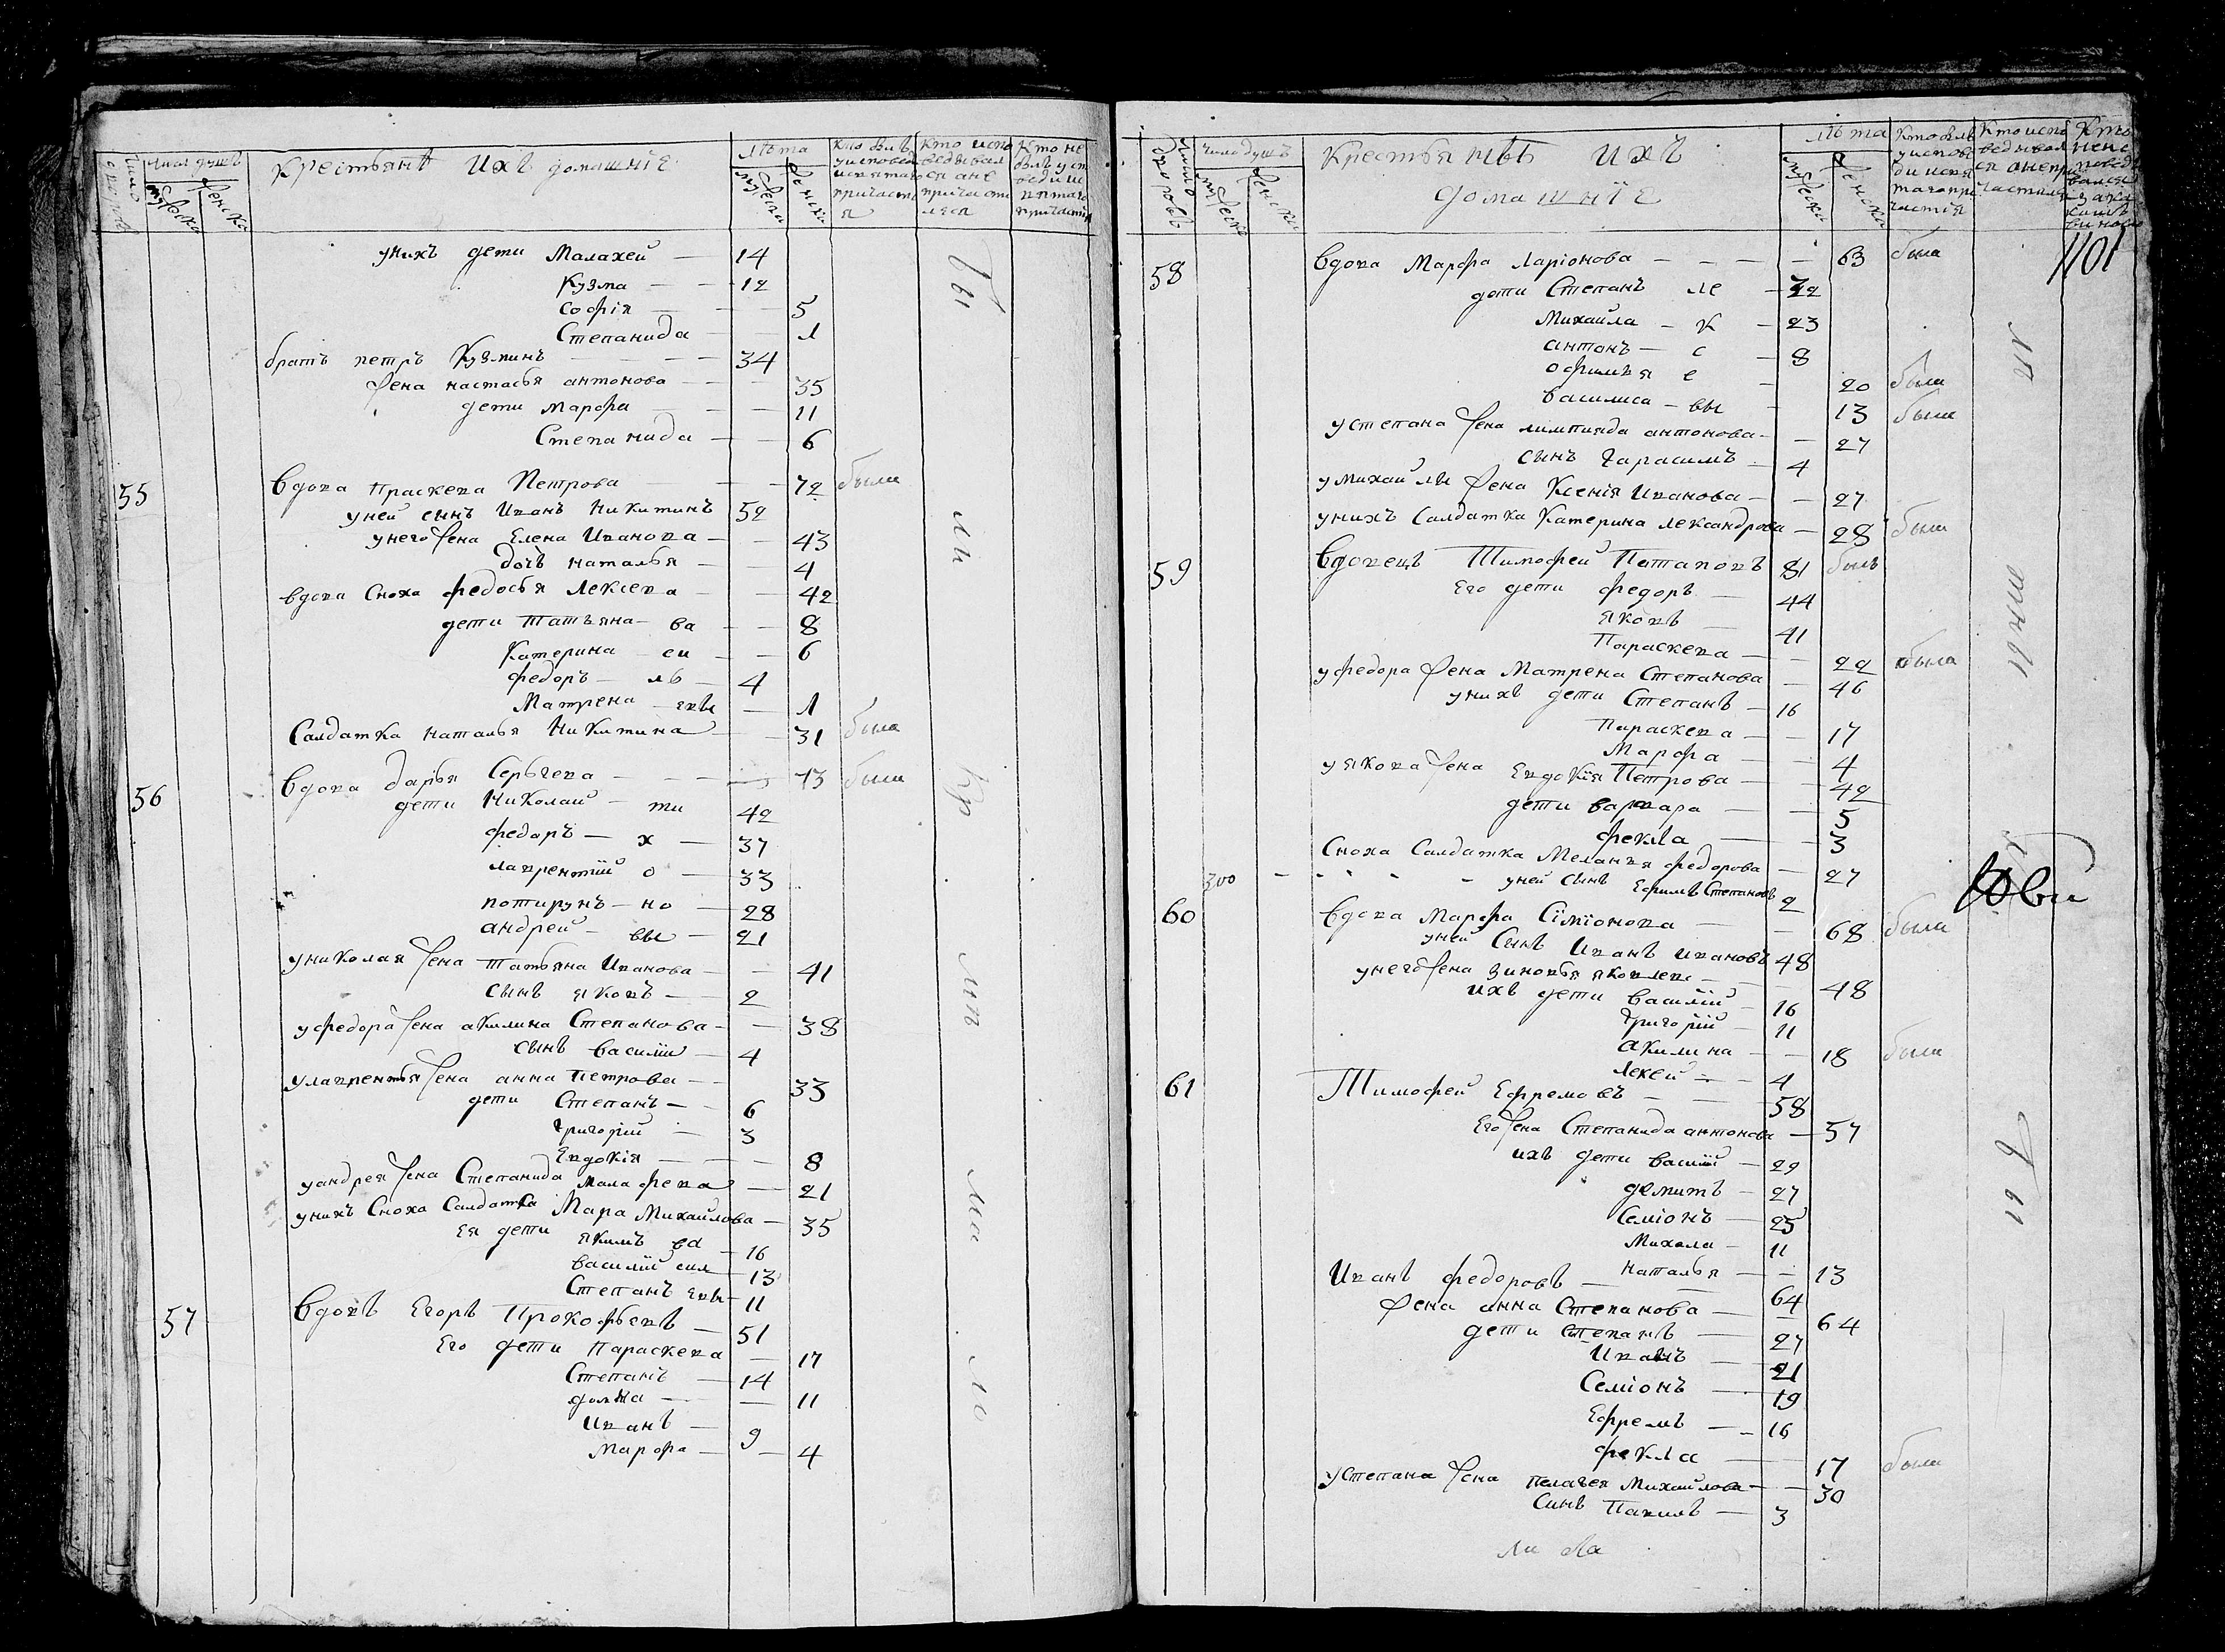 Число дворовъ
число душъ
мужска
женска
Крестьянѣ Ихъ домашнїе
Лѣта
мужска
женска
кто былъ у исповеди и святаго причастия
Кто исповедывался а не причастился
Кто не былъ у исповеди и святаго причастія
унихъ дети Малахей — 14
Кузма — 12
Софія — 5
Степанида — 1
братъ петръ Кузминъ — 34
жена настасья антонова — 35
дети Марфа — 11
Степанида — 6
55 Вдова Праскева Петрова — 72 была
уней сынъ Иванъ Никитинъ 52
унего жена Елена Иванова — 43
дочь наталья — 4
вдова Сноха федосья Лексева — 42
дети Татьяна — ва — 8
Катерина — си — 6
федоръ — ль — 4
Матрена — евы — 1
Салдатка Наталья Никитина — 31 была
56 Вдова дарья Сергеева — 73 была
дети Николай — ти 42
федоръ — х — 37
лаврентїй о — 33
потирунъ — но — 28
андрей — вы — 21
униколая жена Татьяна Иванова — 41
сынъ яковъ — 2
уфедора жена акилина Степанова — 38
сынъ василїи — 4
улаврентья жена анна петрова — 33
дети Степанъ — 6
григорїй — 3
Евдокія — 8
уандрея жена Степанида малафева — 21
унихъ Сноха Салдатка Мара Михайлова — 35
Ея дети якимъ ва — 16
василїй сил — 13
Степанъ евы — 11
57 Вдовъ Егоръ Прокофьевъ — 51
Его дети Параскева — 17
Степанъ — 14
домна — 11
Иванъ — 9
Марфа — 4
Бы
ли
ли
ли
ло
Число дворовъ
число душъ
мужска
женска
Крестьянѣ ихъ
домашнїе
Лѣта
мужска
женска
Кто былъ у исповеди и святаго причастїя
Кто исповедывался а не причастился
1101
58 Вдова Марфа Ларіонова — 63 была
дети Степанъ ле — 32
Михайла — к — 23
антонъ — с — 8
офимья е — 20 была
василиса — вы — 13 была
устепана жена лимпияда антонова — 27
сынъ Гарасимъ — 4
умихайлы жена Ксенїя Иванова — 27
унихъ Салдатка Катерина лександрова — 28 была
59 Вдовецъ Тимофей Потаповъ 81 былъ
Его дети федоръ — 44
яковъ — 41
Параскева — 22 была
уфедора жена Матрена Степанова — 46
унихъ дети Степанъ — 16
Параскева — 17
Марфа — 4
уякова жена Евдокїя Петрова — 42
дети варвара — 5
фекла — 3
Сноха Салдатка Меланья федорова — 27
300 уней сынъ Ефимъ Степановъ 2
60 Вдова Марфа Сїмїонова — 68 была
уней Сынъ Иванъ ивановъ 48
унего жена зиновья яковлева — 48
ихъ дети василїй — 16
григорїй — 11
акилина — 18 была
Лексей — 4
61 Тимофей Ефремовъ — 58
Его жена Степанида антонова — 57
ихъ дети василїй — 29
демитъ — 27
Семїонъ — 25
Михала — 11
наталья — 13
Иванъ федоровъ — 64
жена анна Степанова — 64
дети степанъ — 27
Иванъ — 21
Семїонъ — 19
Ефремъ — 16
фекла — 17 была
устепана жена пелагея Михайлова — 30
Синъ Павилъ — 3